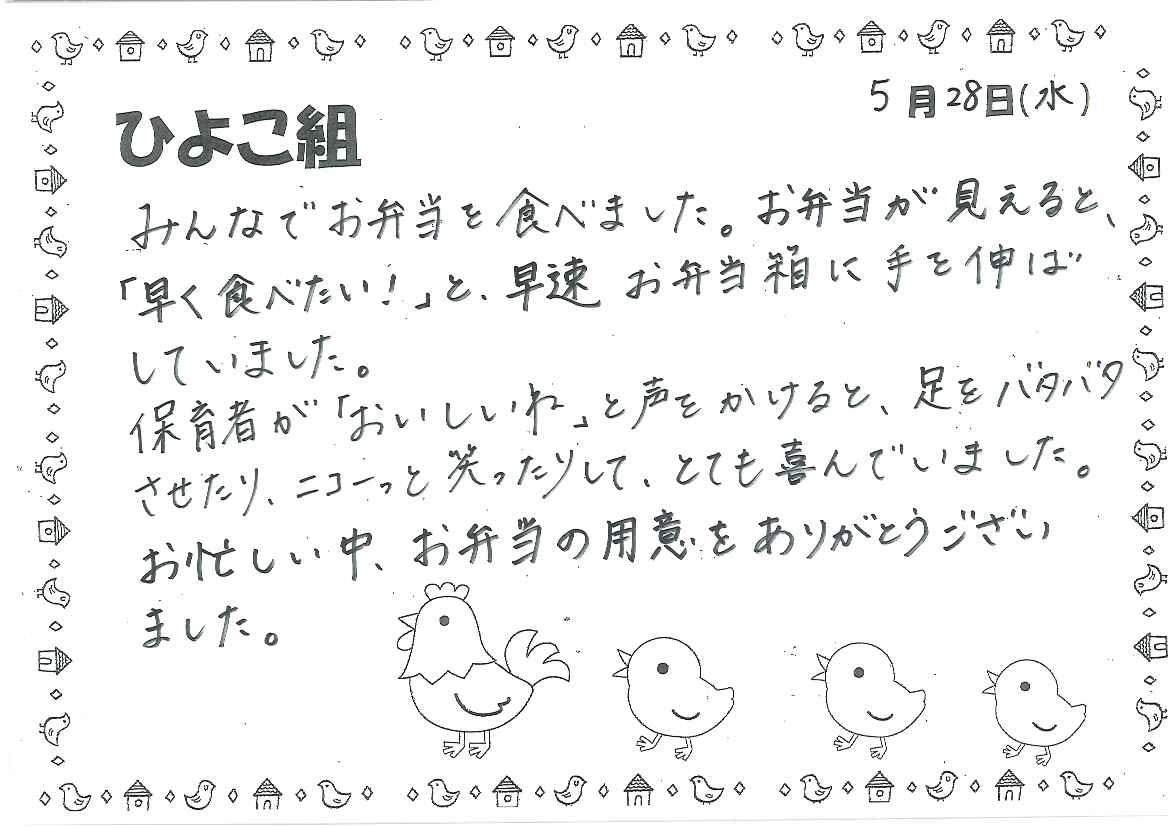 5月28日(水)
ひよこ組
みんなでお弁当を食べました。お弁当が見えると、
「早く食べたい!」と、早速 お弁当箱に手を伸ば
していました。
保育者が「おいしいね」と声をかけると、足をバタバタ
させたり、ニコーっと笑ったりして、とても喜んでいました。
お忙しい中、お弁当の用意をありがとうござい
ました。